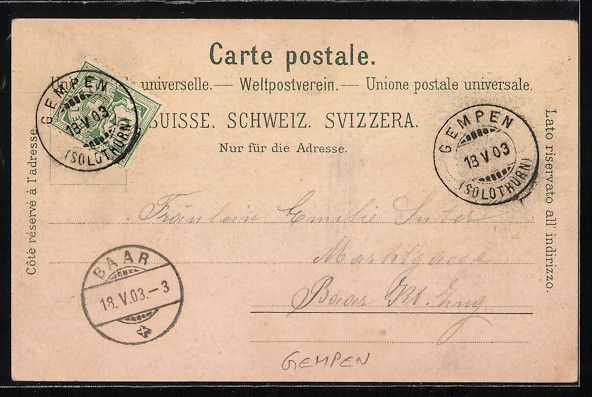 Carte postale.
universelle. — Weltpostverein. — Unione postale universale.
SUISSE. SCHWEIZ. SVIZZERA.
Nur für die Adresse.
Côté réservé à l'adresse.
Lato riservato all' indirizzo.
GEMPEN
18.V.03
(SOLOTHURN)
GEMPEN
18.V.03
(SOLOTHURN)
Fräulein Emilie Suter
Marktgasse
Baar Kt. Zug
BAAR
18.V.03.-3
GEMPEN